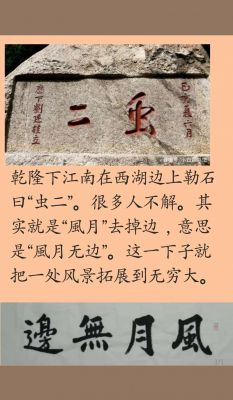 己亥歲六月
虫二
歷下劉廷桂立
乾隆下江南在西湖边上勒石
曰“虫二”。很多人不解。其
实就是“風月”去掉边，意思
是“風月无边”。这一下子就
把一处风景拓展到无穷大。
風月無邊
1/1